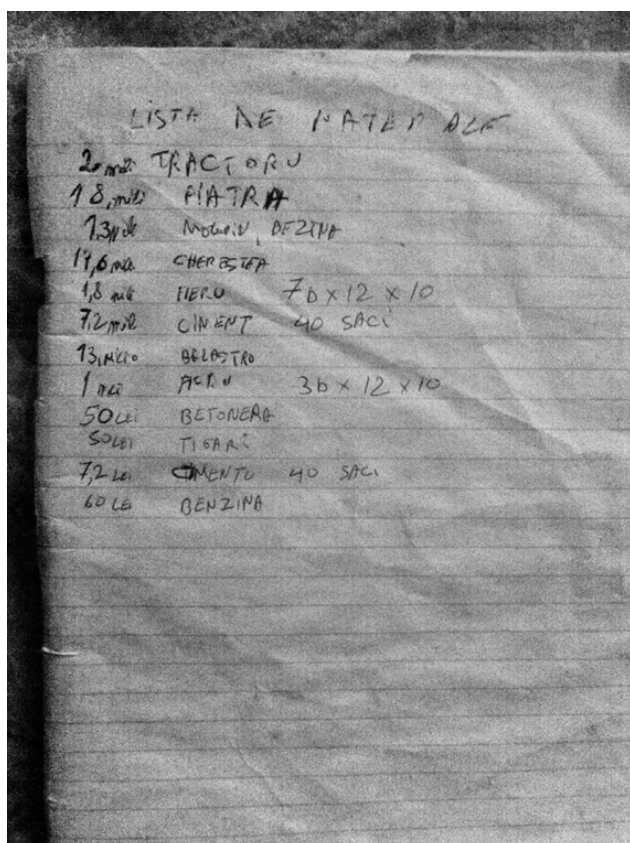 LISTA DE MATERIALE
2 mil TRACTORU
18, mili PIATRA
1,3 mil MOTORIN, BEZINA
11,6 mil CHERESTEA
1,8 mil FIERU 7 b x 12 x 10
7,2 mil CIMENT 40 SACI
13, BELASTRO
1 mil FIERU 3b x 12 x 10
50 LEI BETONERA
50 LEI TIGARI
7,2 LEI CIMENTU 40 SACI
60 LEI BENZINA